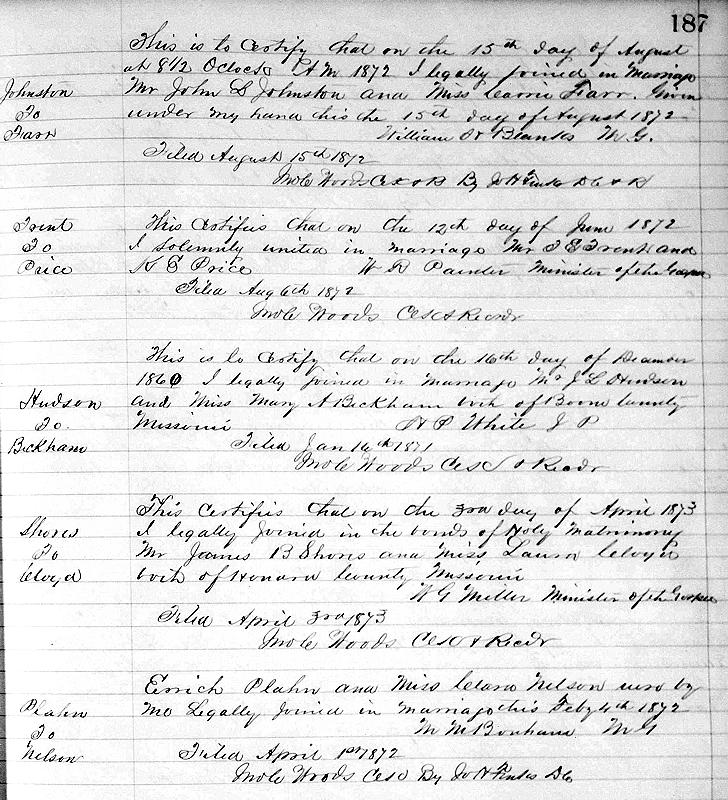 187
This is to Certify that on the 15th day of August
at 8 1/2 Oclock A M 1872 I legally joined in Marriage
Johnston Mr John S Johnston and Miss Carrie Farr. Given
To under my hand this the 15th day of August 1872
Farr William H Blanks M. G.
Filed August 15th 1872
Jno C Woods By
Trent This Certifies that on the 12th day of June 1872
To I Solemnly united in marriage Mr T E Trent and
Price K E Price W R Painter Minister of the Gospel
Filed Aug 6th 1872
Jno C Woods Recdr
This is to Certify that on the 16th day of December
1860 I legally joined in Marriage Mr J L Hudson
Hudson and Miss Mary A Beckham both of Boone County
To. Missouri P White J P
Beckham Filed Jan 16th 1871
Jno C Woods & Recdr
This Certifies that on the 3rd day of April 1873
Shores I legally joined in the bonds of Holy Matrimony
To Mr James B Shores and Miss Laura Cloyd
Cloyd both of Howard County Missouri
W G Miller Minister of the Gospel
Filed April 3rd 1873
Jno C Woods & Recdr
Errich Plahn and Miss Clara Nelson were by
Plahn me Legally joined in Marriage this Feby 4th 1872
To M M Bonham M G
Nelson Filed April 1st 1872
Jno C Woods By